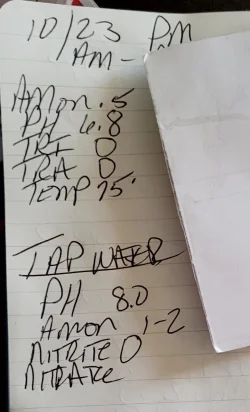 10/23 PM
AM -
Amon .5
PH 6.8
TRI 0
TRA 0
Temp 75°
TAP WATER
PH 8.0
Amon 1-2
NITRITE 0
NITRATE